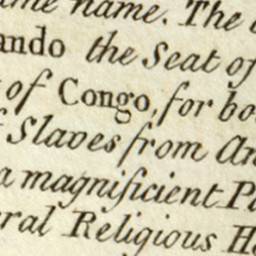 name. The
ando the Seat of
of Congo, for bo
Slaves from An
a magnificient Pa
ral Religious Ho